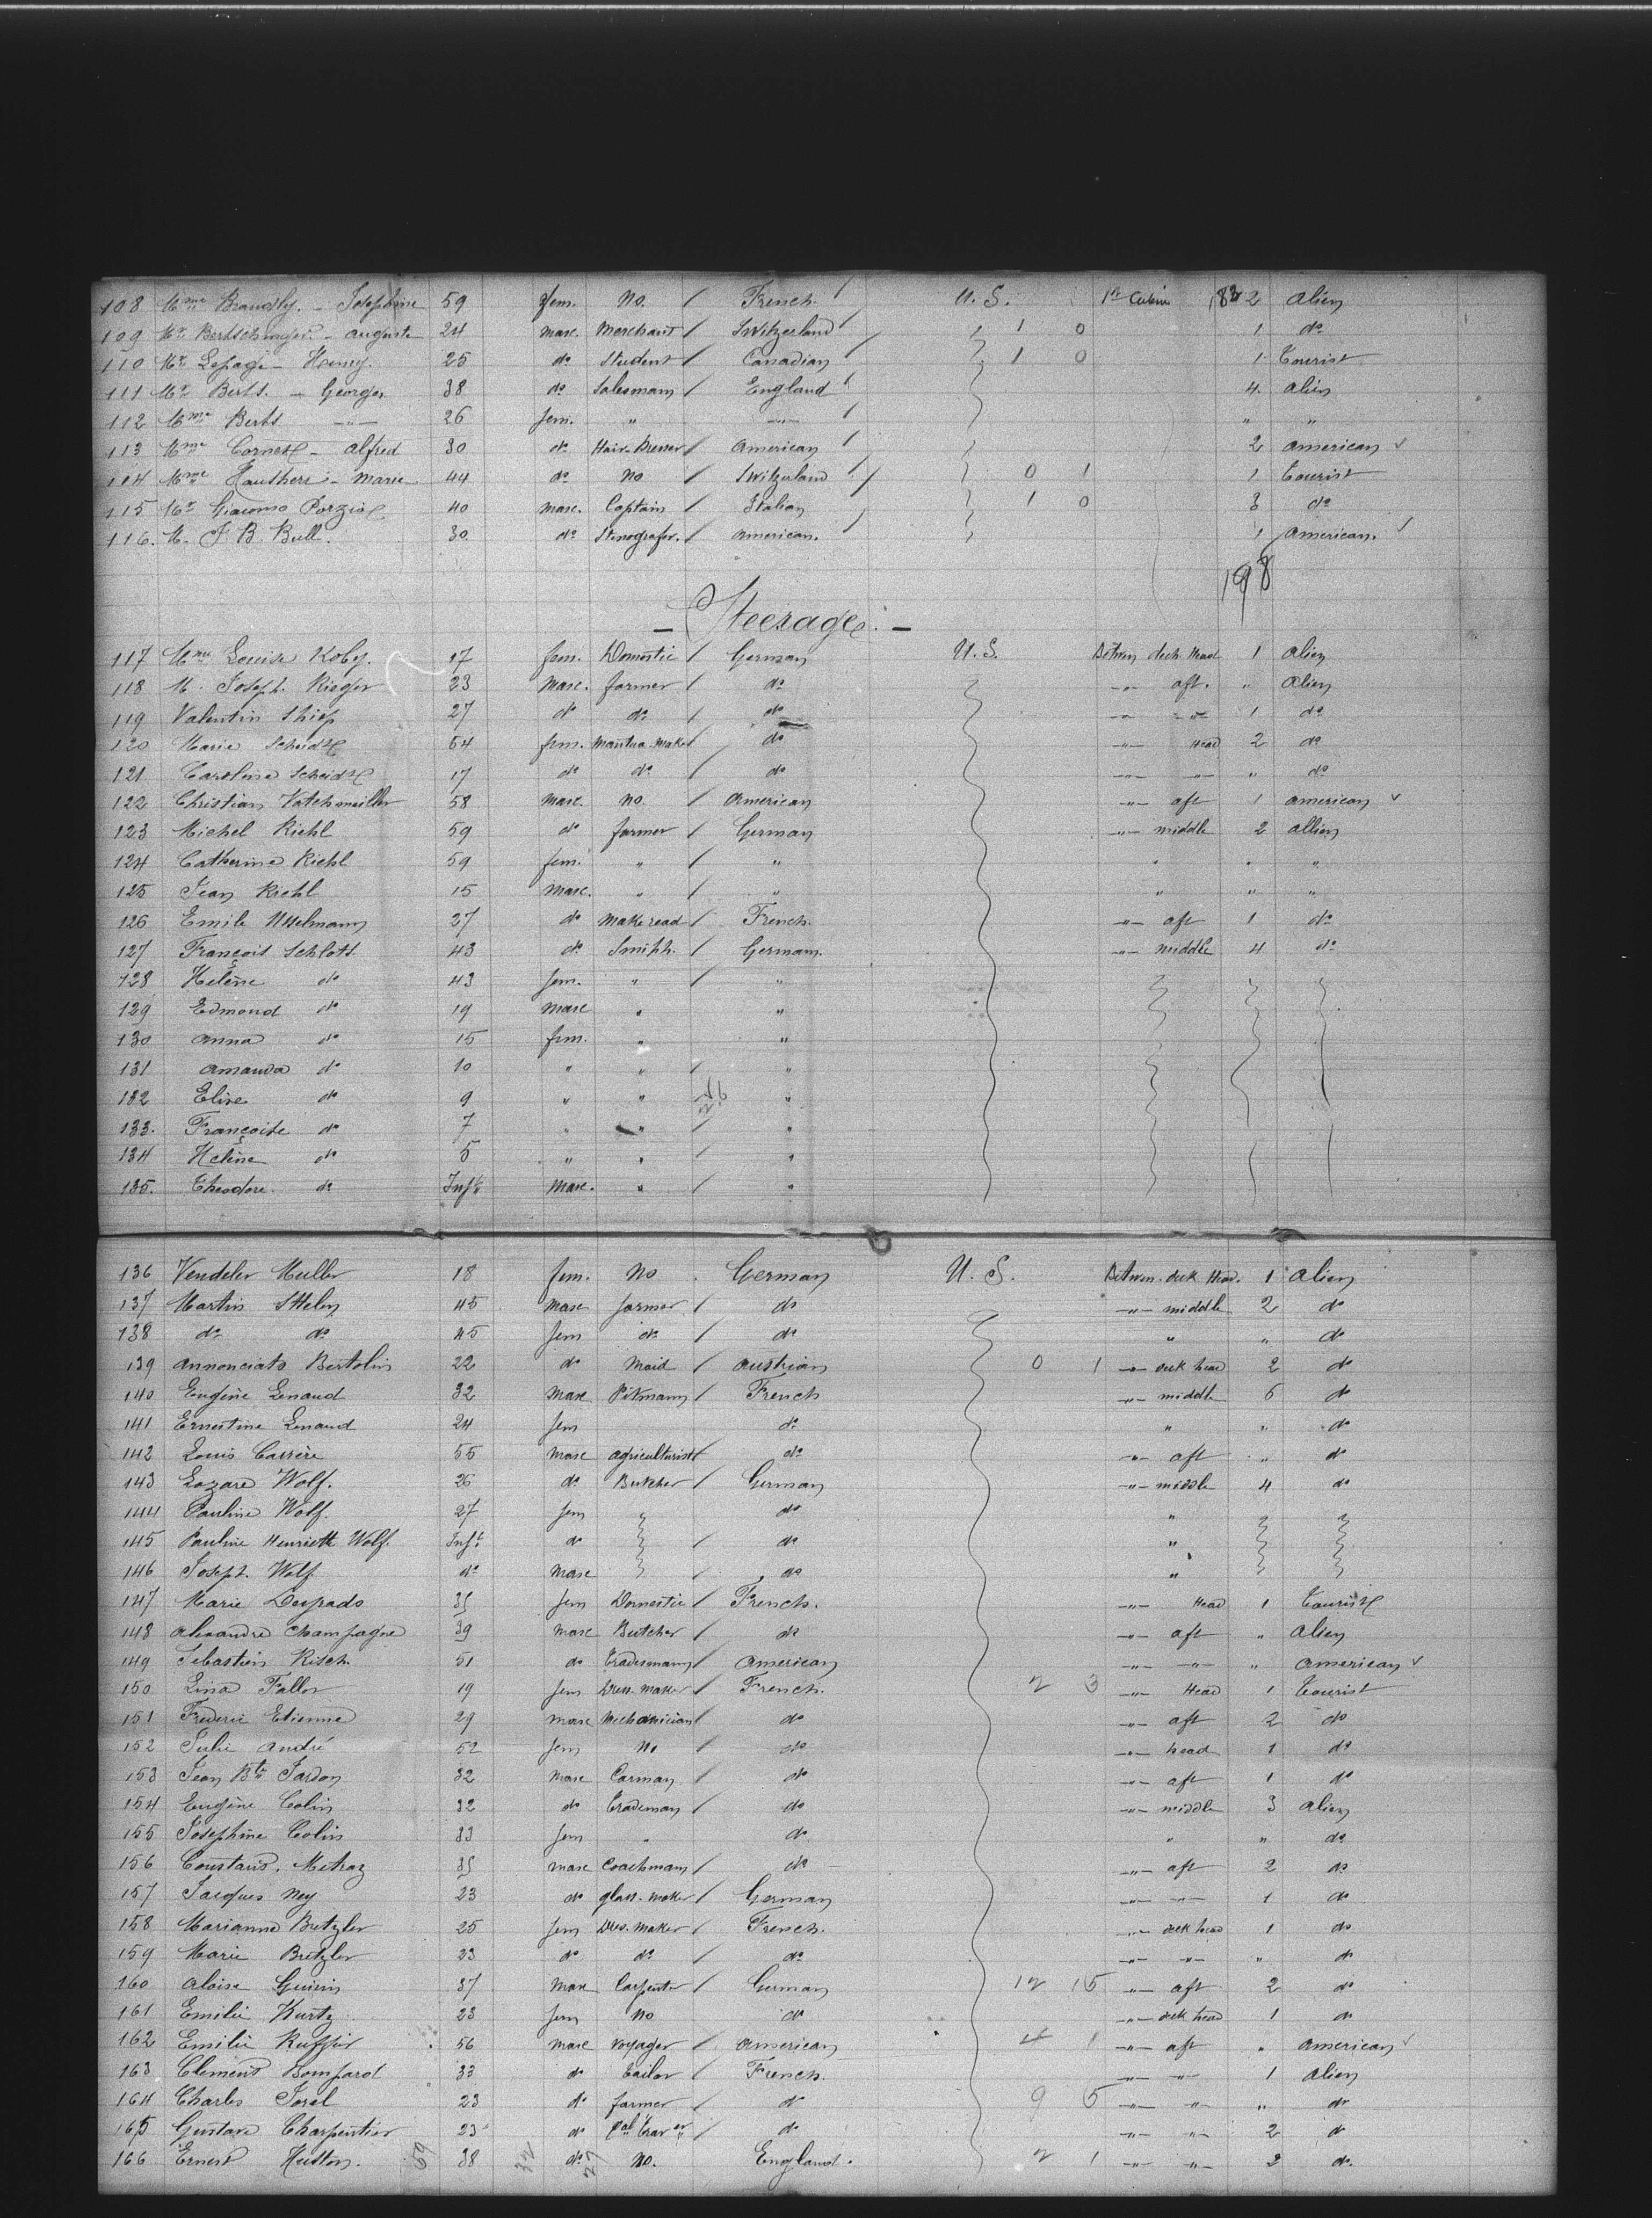 108 Mme Brandly. - Josephine 59 fem. No. / French. U. S. 1st Cabin 2 alien
109 Mr. Bertschinger - auguste 24 masc. Merchant / Switzerland 1 0 1 do
110 Mr. Lepage - Henry. 25 do Student / Canadian 1 0 1 Tourist
111 Mr. Berts. - Georges 38 do Salesman / England 4 alien
112 Mme Berts -"- 26 fem. " -"- " "
113 Mme Cornet - alfred 30 do Hair-Dresser / american 2 american
114 Mme - Marie 44 do No / Switzerland 0 1 1 Tourist
115 Mr. Giacomo 40 masc. Captain / Italian 1 0 3 do
116. M. J. B. Bull. 30 do Stenografer. / american. 1 american.
198
- Steerage. -
117 Mme Louise Koby. 17 fem. Domestic / German U. S. Betwen deck Head 1 alien
118 M. Joseph Rieger 23 masc. farmer / do -"- aft. " alien
119 Valentin 27 do do / do -"- -"- 1 do
120 Marie 54 fem. Mantua-Maker do -"- Head 2 do
121 Caroline 17 do do / do -"- -"- " do
122 Christian 58 masc. no. / american -"- aft 1 american
123 Michel Riehl 59 do farmer / German -"- middle 2 allien
124 Catherine Riehl 59 fem. " / " " " "
125 Jean Riehl 15 masc. " / " " " "
126 Emile Usselmann 37 do / French. -"- aft 1 do
127 François Schlots 43 do Smith. / German. -"- middle 4 do
128 Helène do 43 fem. " / "
129 Edmond do 19 masc " "
130 anna do 15 fem. " "
131 amanda do 10 " " / "
132 Elise do 9 " " "
133. Françoise do 7 " " / "
134 Helène do 5 " " / "
135. Theodore. do Inft masc. " / "
136 Vendeler Muller 18 fem. No. German U. S. Betwen. deck Head. 1 alien
137 Martin 45 masc farmer / do -"- middle 2 do
138 do do 45 fem do / do " " do
139 annonciata Bertolin 22 do Maid / austrian 0 1 -"- deck head 2 do
140 Eugène Lenaud 32 masc Pitmann / French -"- middle 5 do
141 Ernestine Lenaud 24 fem do " " do
142 Louis Carrère 55 masc agriculturist do -"- aft " do
143 Lazare Wolf. 26 do Butcher / German -"- middle 4 do
144 Pauline Wolf. 27 fem do "
145 Pauline Henriette Wolf. Inft do / do "
146 Joseph Wolf do masc / do "
147 Marie 35 fem Domestic / French. -"- Head 1 Tourist
148 alexandre Champagne 39 masc Butcher / do -"- aft " alien
149 Sebastien Risch. 51 do Tradesmann / american -"- -"- " american
150 Lina Faller 19 fem Dress-Maker / French. 2 3 -"- Head 1 Tourist
151 Frederic Etienne 29 masc Mechanician / do -"- aft 2 do
152 Julie andré 52 fem No / do -"- head 1 do
153 Jean Bte Jardon 32 masc Carman / do -"- aft 1 do
154 Eugène Colin 32 do Trademan / do -"- middle 3 alien
155 Josephine Colin 33 fem " do " " do
156 Metraz 35 masc Coachmann / do -"- aft 2 do
157 Jacques Ney 23 do glass-maker / German -"- -"- 1 do
158 Marianne Bretzler 25 fem Dres-Maker / French. -"- deck head 1 do
159 Marie Bretzler 23 do do / do -"- -"- " do
160 aloise 37 masc Carpenter / German 12 15 -"- aft 2 do
161 Emilie Kurtz 23 fem No do -"- deck head 1 do
162 Emilie 56 masc voyager / american 4 1 -"- aft " american
163 Clement Bompard 33 do tailor / French. -"- -"- 1 alien
164 Charles 23 do farmer / do 9 5 -"- -"- " do
165 Gustave Charpentier 23 do do -"- -"- 2 do
166 Ernest Hutton. 59 38 32 do 27 No. England. 2 1 -"- -"- 2 do.